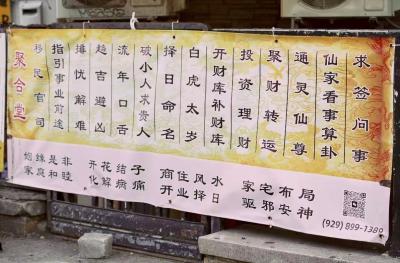 求签问事
仙家看事算卦
通灵仙尊
聚财转运
投资理财
开财库补财库
白虎太岁
择日命名
破小人求贵人
流年口舌
趋吉避凶
排忧解难
指引事业前途
移民官司
聚合堂
家宅布局
驱邪安神
商住风水
开业择日
子
痛
开花结
化解病
姻缘是非
家庭和睦
(929) 899-1389